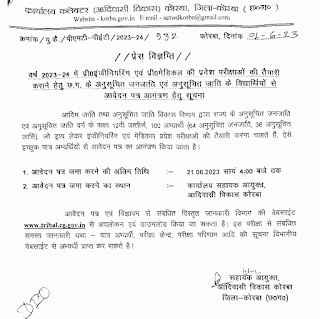 कार्यालय कलेक्टर (आदिवासी विकास) कोरबा, जिला-कोरबा (छ०ग०)
Website - korba.gov.in E mail - actwdkorba@gmail.com
क्रमांक/यु.दी./पीएमटी-पीईटी/2023-24/ 992 कोरबा, दिनांक 01-6-23
//प्रेस विज्ञप्ति//
वर्ष 2023-24 में प्री०इंजीनियरिंग एवं प्री०मेडिकल की प्रवेश परीक्षाओं की तैयारी
कराने हेतु छ.ग. के अनुसूचित जनजाति एवं अनुसूचित जाति के विद्यार्थियों से
आवेदन पत्र आमंत्रण हेतु सूचना
आदिम जाति तथा अनुसूचित जाति विकास विभाग द्वारा राज्य के अनुसूचित जनजाति
एवं अनुसूचित जाति वर्ग के कक्षा 12वी उत्तीर्ण, 100 अभ्यर्थी (64 अनुसूचित जनजाति, 36 अनुसूचित
जाति) जो ड्राप लेकर इंजीनियरिंग एवं मेडिकल प्रवेश परीक्षाओं की तैयारी करना चाहते है, ऐसे
इच्छुक पात्र अभ्यर्थियों से आवेदन पत्र का आमंत्रण किया जाता है।
1. आवेदन पत्र जमा करने की अंतिम तिथि :- 21.06.2023 सायं 4:00 बजे तक
2. आवेदन पत्र जमा करने का स्थान :- कार्यालय सहायक आयुक्त,
आदिवासी विकास कोरबा
आवेदन पत्र एवं विज्ञापन से संबंधित विस्तृत जानकारी विभाग की वेबसाईट
www.tribal.cg.gov.in से अवलोकन एवं डाउनलोड किया जा सकता है। इस परीक्षा से संबंधित
समस्त जानकारी यथा – पात्र अभ्यर्थी, परीक्षा केन्द्र, परीक्षा परिणाम आदि की सूचना विभागीय
वेबसाईट से अभ्यर्थी प्राप्त कर सकते है।
सहायक आयुक्त,
आदिवासी विकास कोरबा
जिला-कोरबा (छ०ग०)